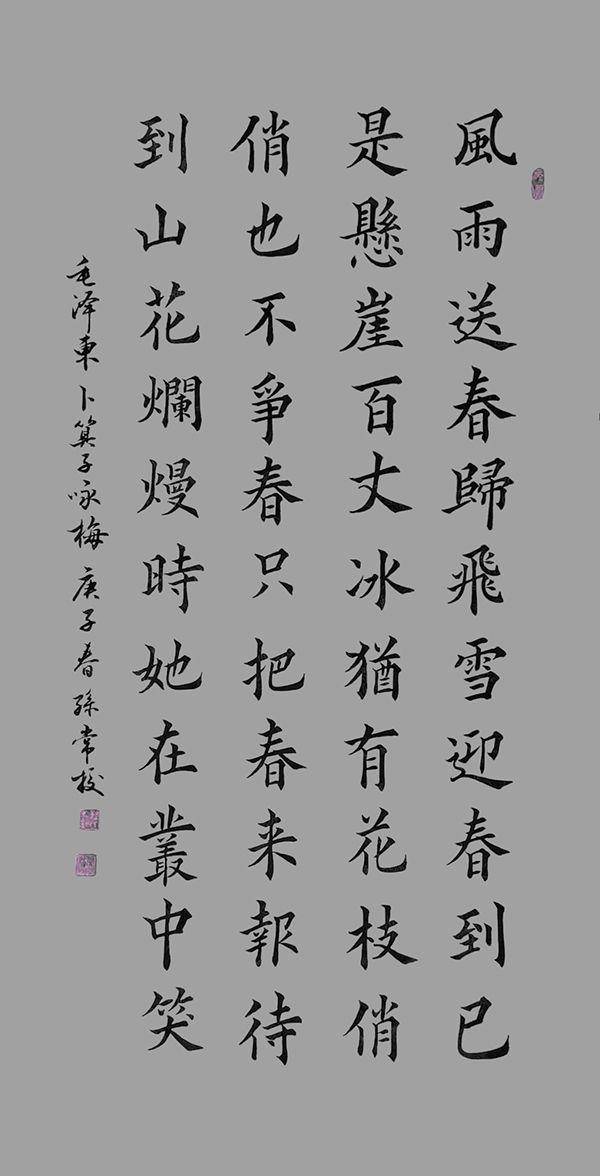 風雨送春歸飛雪迎春到已
是懸崖百丈冰猶有花枝俏
俏也不爭春只把春来報待
到山花爛熳時她在叢中笑
毛泽東卜算子咏梅庚子春孫常校